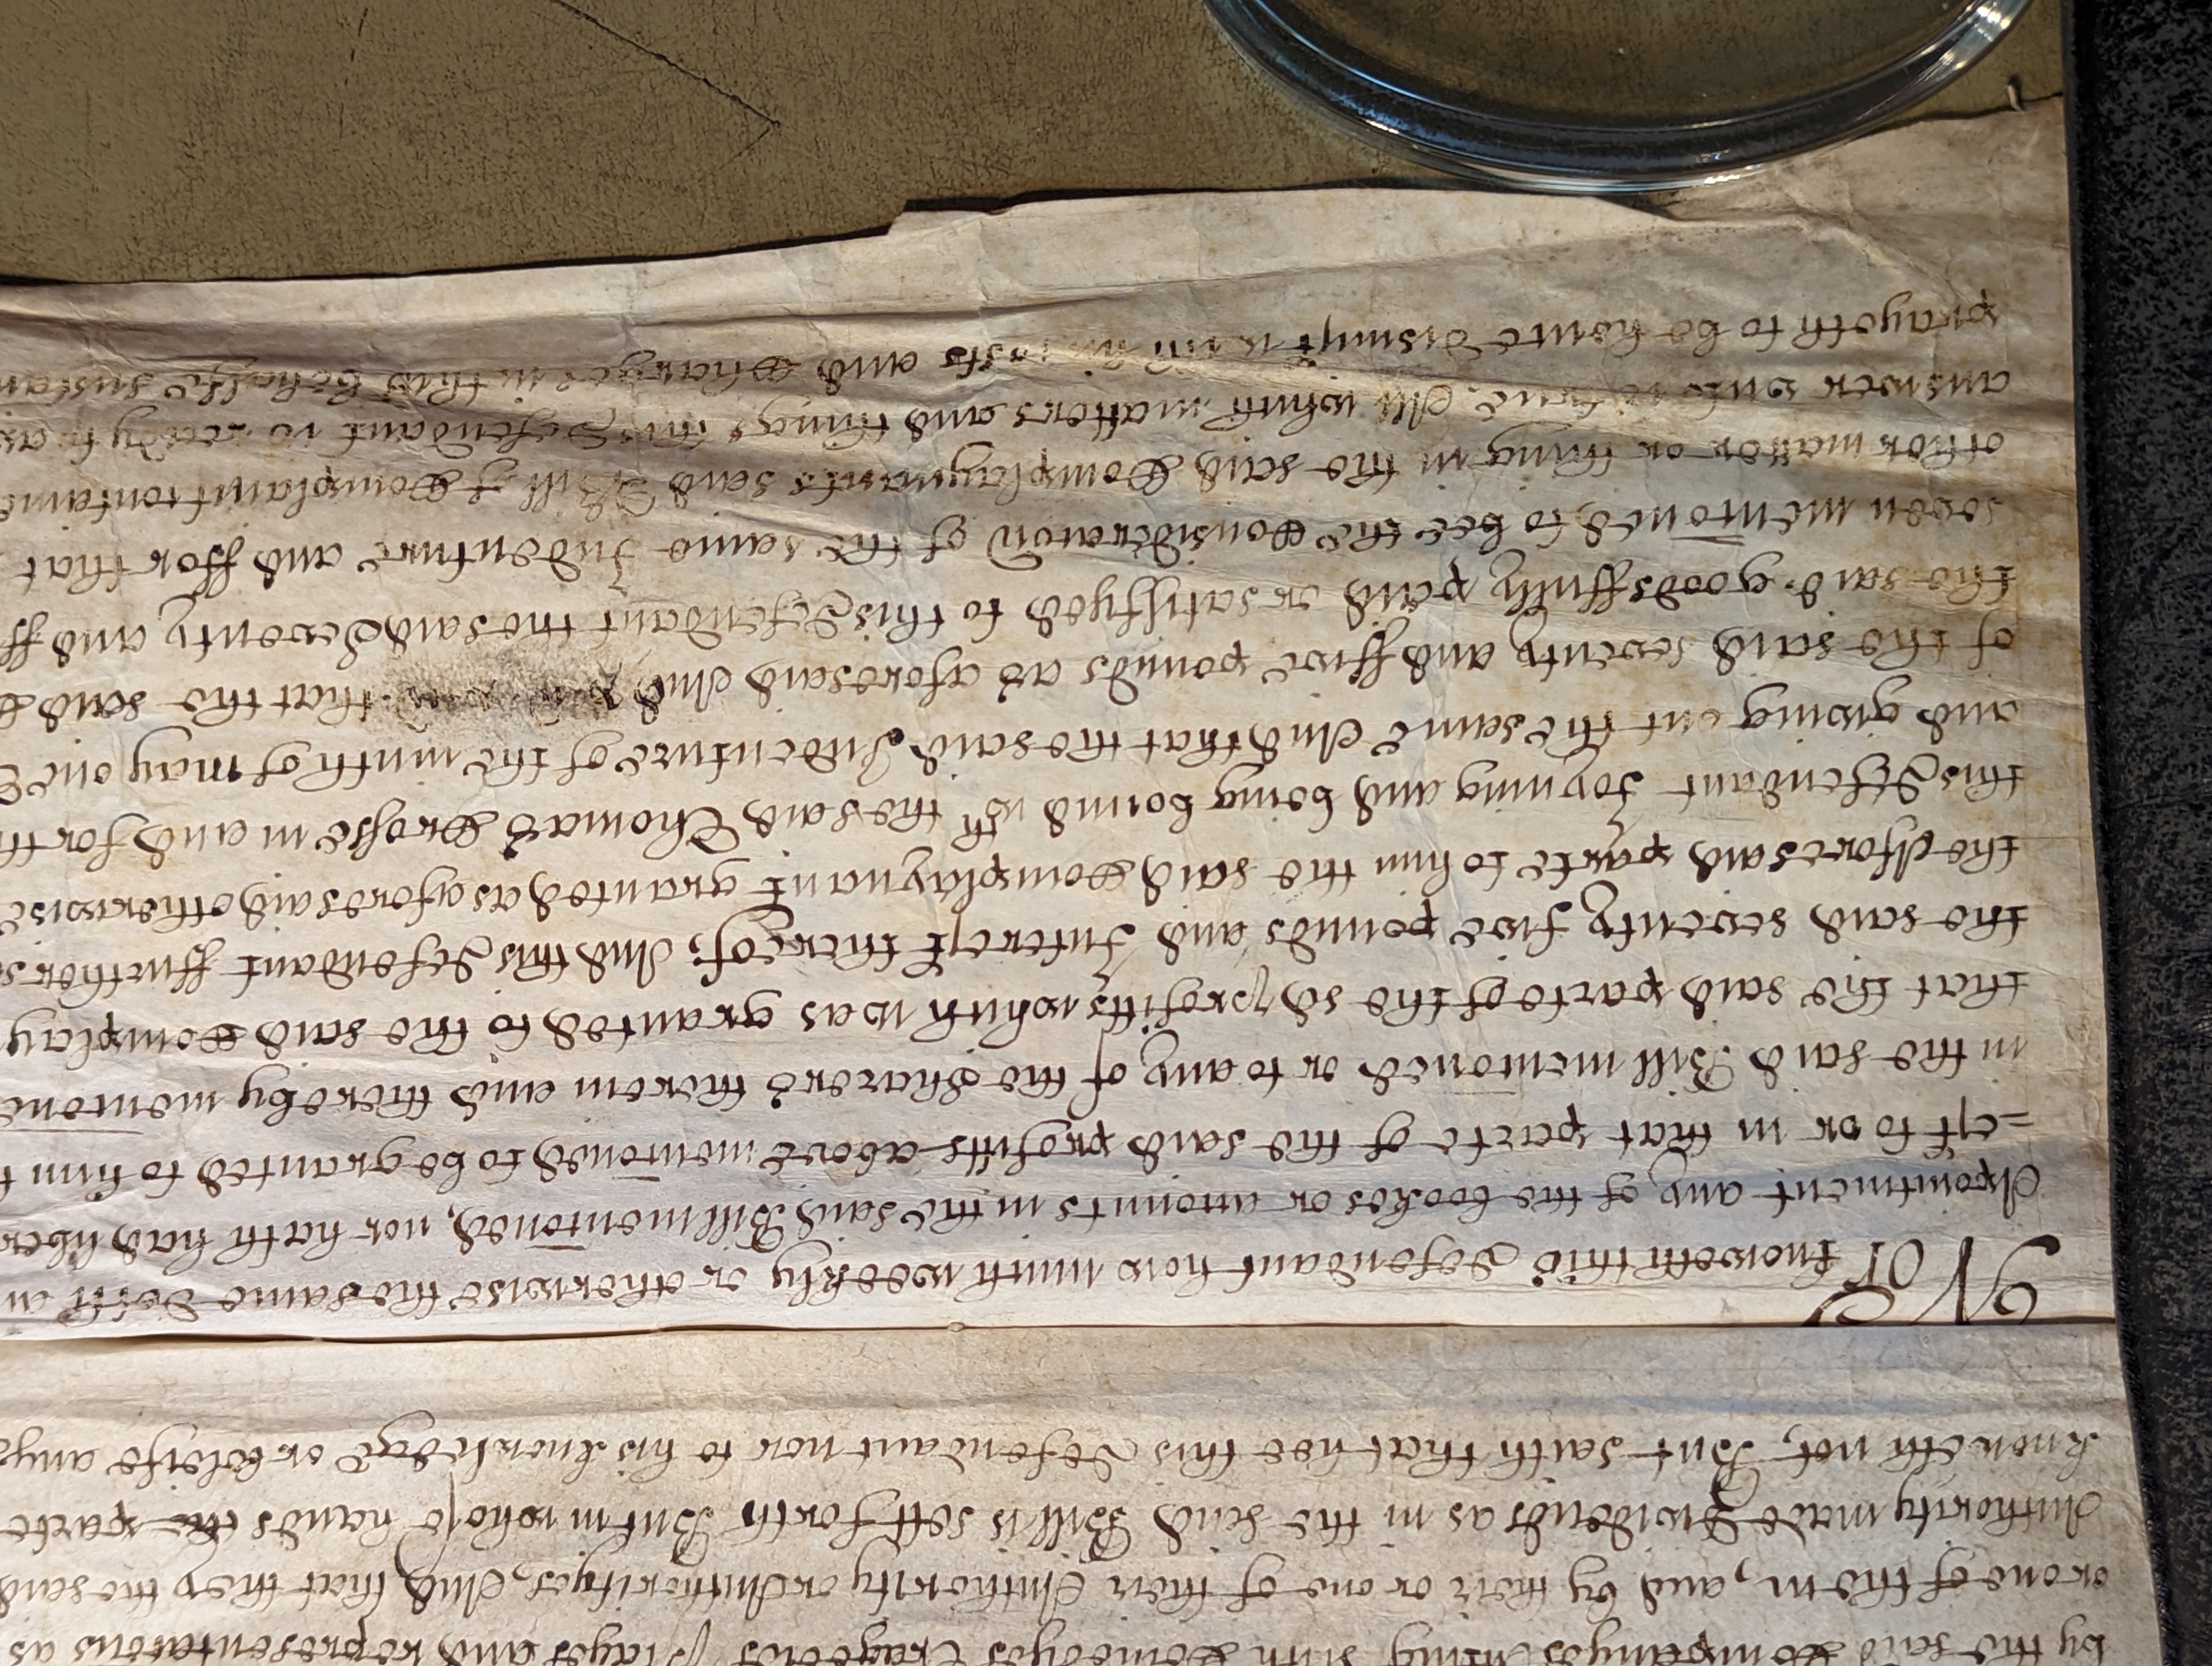 by the said Companyes Acting such Comedyes Tragedies Playes and representations as
or one of them, and by their or one of their Authority or Authorityes, And that they the said
Authority made Dividends as in the said Bill is sett forth But in whose hands the parte
knoweth not, But saith that hee this Defendant nor to his knowledge or beleife any
Nor knoweth this Defendant how much weekly or otherwise the same doth
Apointment any of the bookes or accounts in the said Bill mentoned, nor hath had
=est to or in that parte of the said profitts above mentoned to be granted to him
in the said Bill mentoned or to any of the sharers therein and thereby mentone
that the said parte of the sd profitts which was granted to the said Complay
the said seventy five pounds and Interest thereof; And this Defendant further
the Aforesaid parte to him the said Complaynant granted as aforesaid otherwise
this Defendant Joyning and being bound wth the said Thomas Crosse in and for th
and giving out the same And that the said Indenture of the ninth of may one
of the said seventy and ffive pounds as aforesaid And that the said
the said goods ffully paid or satisfyed to this Defendant the said Seventy and ff
seven mentoned to bee the Consideraton of the same Indenture and ffor that
other matter or thing in the said Complaynants said Bill of Complaint containe
answer unto All which matters and things this Defendant is ready to
prayeth to be hence dismist with his costs and Charges in this behalfe sustan